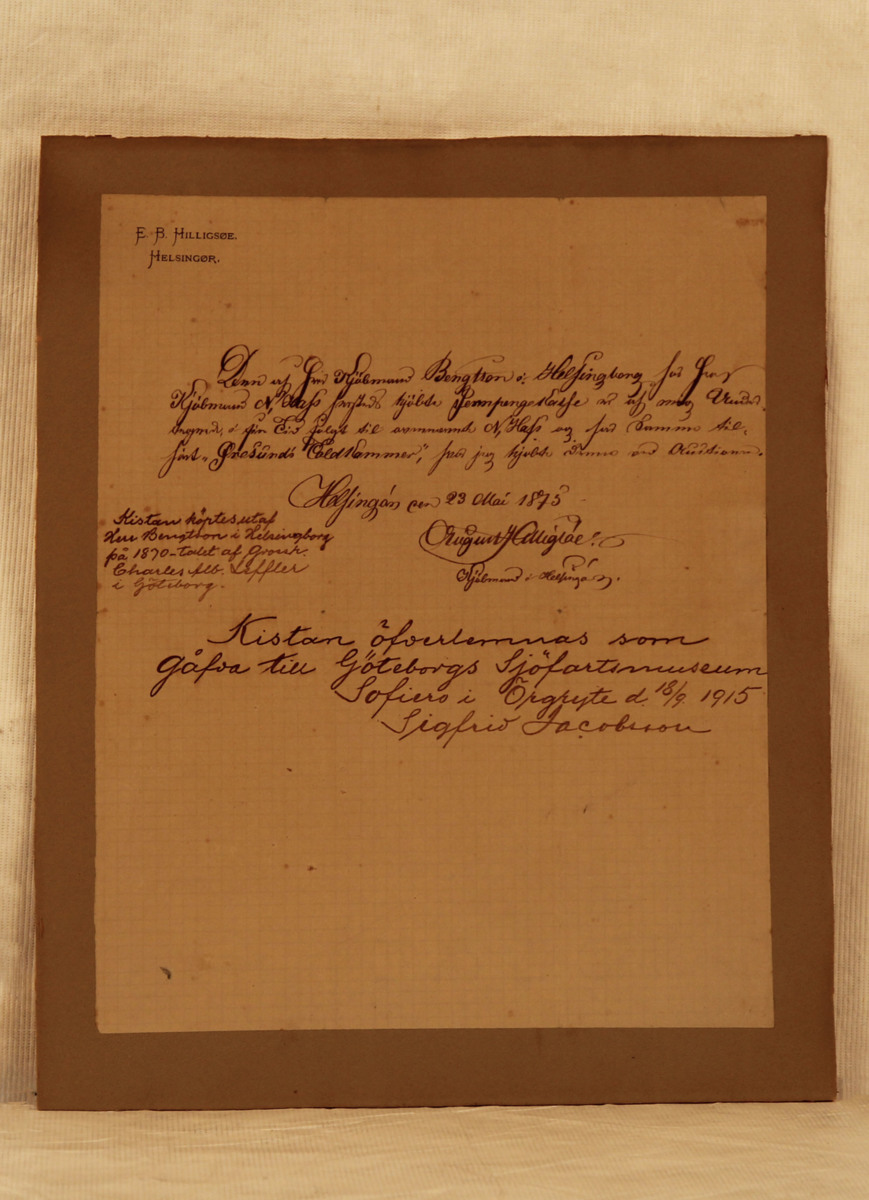 E. B. HILLIGSØE.
HELSINGØR.
Den af Herr Kjöbmand Bengtson i Helsingborg, hos Herr
Kjöbmand N, Hass hersteds kjöbte Pennge Kasse er af mig Under-
tegned, i sin Tid solgt til ovennævnte N, Hass og har Samme til-
hört „Öresunds Toldkammer", hvor jeg kjöbte Denne ved Auctionen.
Helsingör den 23 Mai 1875
August Hilligsöe.
Kjöbmand i Helsingör.
Kistan köptes utaf
Herr Bengtson i Helsingborg
på 1870-talet af Grossh.
Charles Alb. Löffler
i Göteborg.
Kistan öfverlemnas som
gåfva till Göteborgs Sjöfartsmuseum
Sofiero i Örgryte d. 18/9 1915
Sigfrid Jacobsson